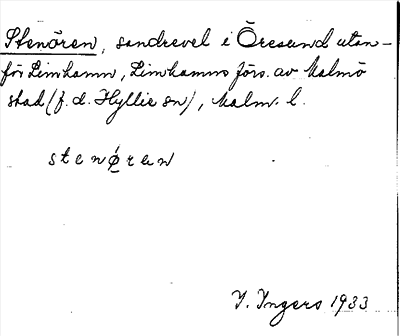 Stenören, sandrevel i Öresund utan-
för Limhamn, Limhamns förs. av Malmö
stad (f. d. Hyllie sn), Malm. l.
stenø̨ren
I. Ingers 1933